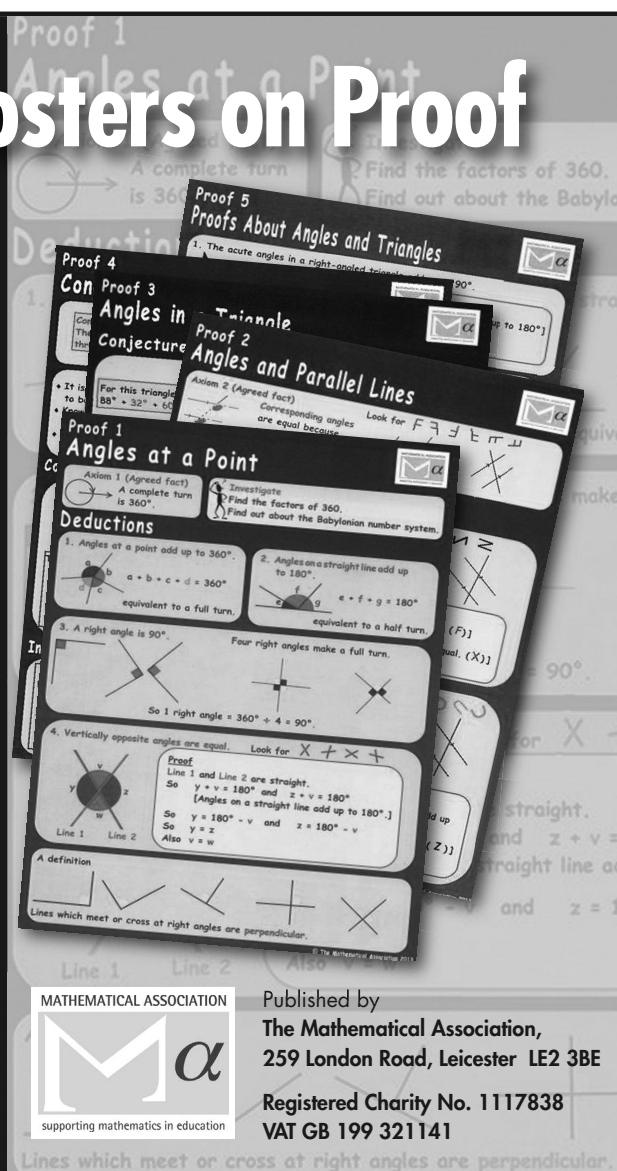 Proof 1
Angles at a Point
osters on Proof
A complete turn
is 360
Find the factors of 360.
Find out about the Babylo
Deductio
Proof 5
Proofs About Angles and Triangles
1. The acute angles in a right-angled
90°.
up to 180°]
Proof 4
Con
Proof 3
Angles in
Triangle
Conjecture
For this triangle
88° + 32° + 60
Proof 2
Angles and Parallel Lines
Axiom 2 (Agreed fact)
Corresponding angles
are equal because
Look for
(F)]
qual. (X)]
add up
(Z)]
Proof 1
Angles at a Point
Axiom 1 (Agreed fact)
A complete turn
is 360°.
Investigate
Find the factors of 360.
Find out about the Babylonian number system.
Deductions
1. Angles at a point add up to 360°.
a
b
d
c
a + b + c + d = 360°
equivalent to a full turn.
2. Angles on a straight line add up
to 180°.
e
f
g
e + f + g = 180°
equivalent to a half turn.
3. A right angle is 90°.
Four right angles make a full turn.
So 1 right angle = 360° ÷ 4 = 90°.
4. Vertically opposite angles are equal. Look for X + X +
v
y
z
w
Line 1 Line 2
Proof
Line 1 and Line 2 are straight.
So y + v = 180° and z + v = 180°
[Angles on a straight line add up to 180°.]
So y = 180° - v and z = 180° - v
So y = z
Also v = w
A definition
Lines which meet or cross at right angles are perpendicular.
© The Mathematical Association
make
= 90°.
for X
straight.
and z + v =
straight line ad
and z = 1
Line 1 Line 2
Also v = w
MATHEMATICAL ASSOCIATION
M α
supporting mathematics in education
Published by
The Mathematical Association,
259 London Road, Leicester LE2 3BE
Registered Charity No. 1117838
VAT GB 199 321141
Lines which meet or cross at right angles are perpendicular.